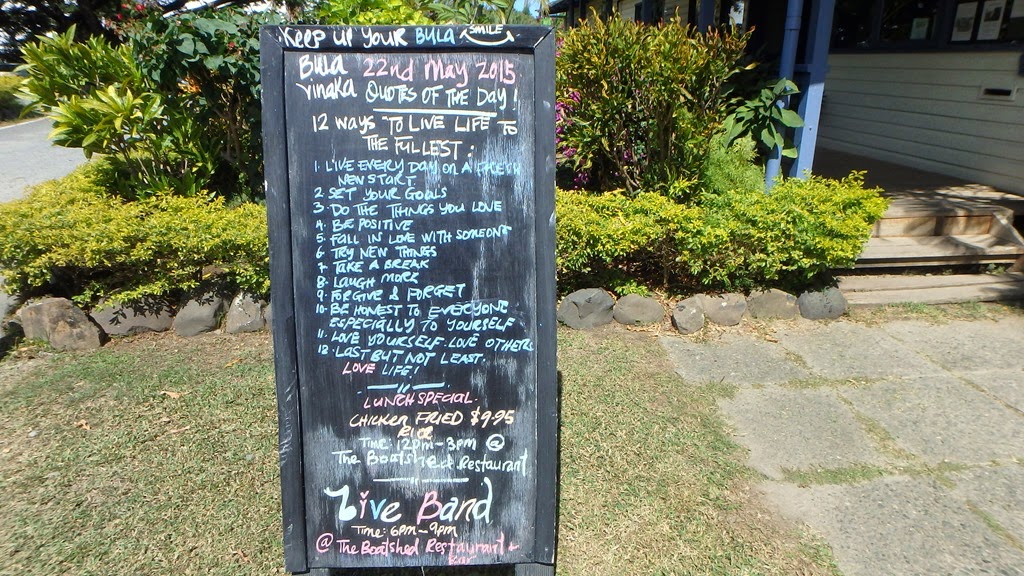 KEEP UP YOUR BULA SMILE
BULA 22nd May 2015
VINAKA QUOTES OF THE DAY!
12 ways TO LIVE LIFE TO
THE FULLEST:
1. LIVE EVERY DAY ON A FRESH
NEW START
2. SET YOUR GOALS
3. DO THE THINGS YOU LOVE
4. BE POSITIVE
5. FALL IN LOVE WITH SOMEONE
6. TRY NEW THINGS
7. TAKE A BREAK
8. LAUGH MORE
9. FORGIVE & FORGET
10. BE HONEST TO EVERYONE
ESPECIALLY TO YOURSELF
11. LOVE YOURSELF. LOVE OTHERS
12. LAST BUT NOT LEAST.
LOVE LIFE!
LUNCH SPECIAL.
CHICKEN FRIED $9.95
RICE
TIME: 12pm-3pm @
The Boatshed Restaurant
Live Band
Time: 6pm-9pm
@ The Boatshed Restaurant &
Bar